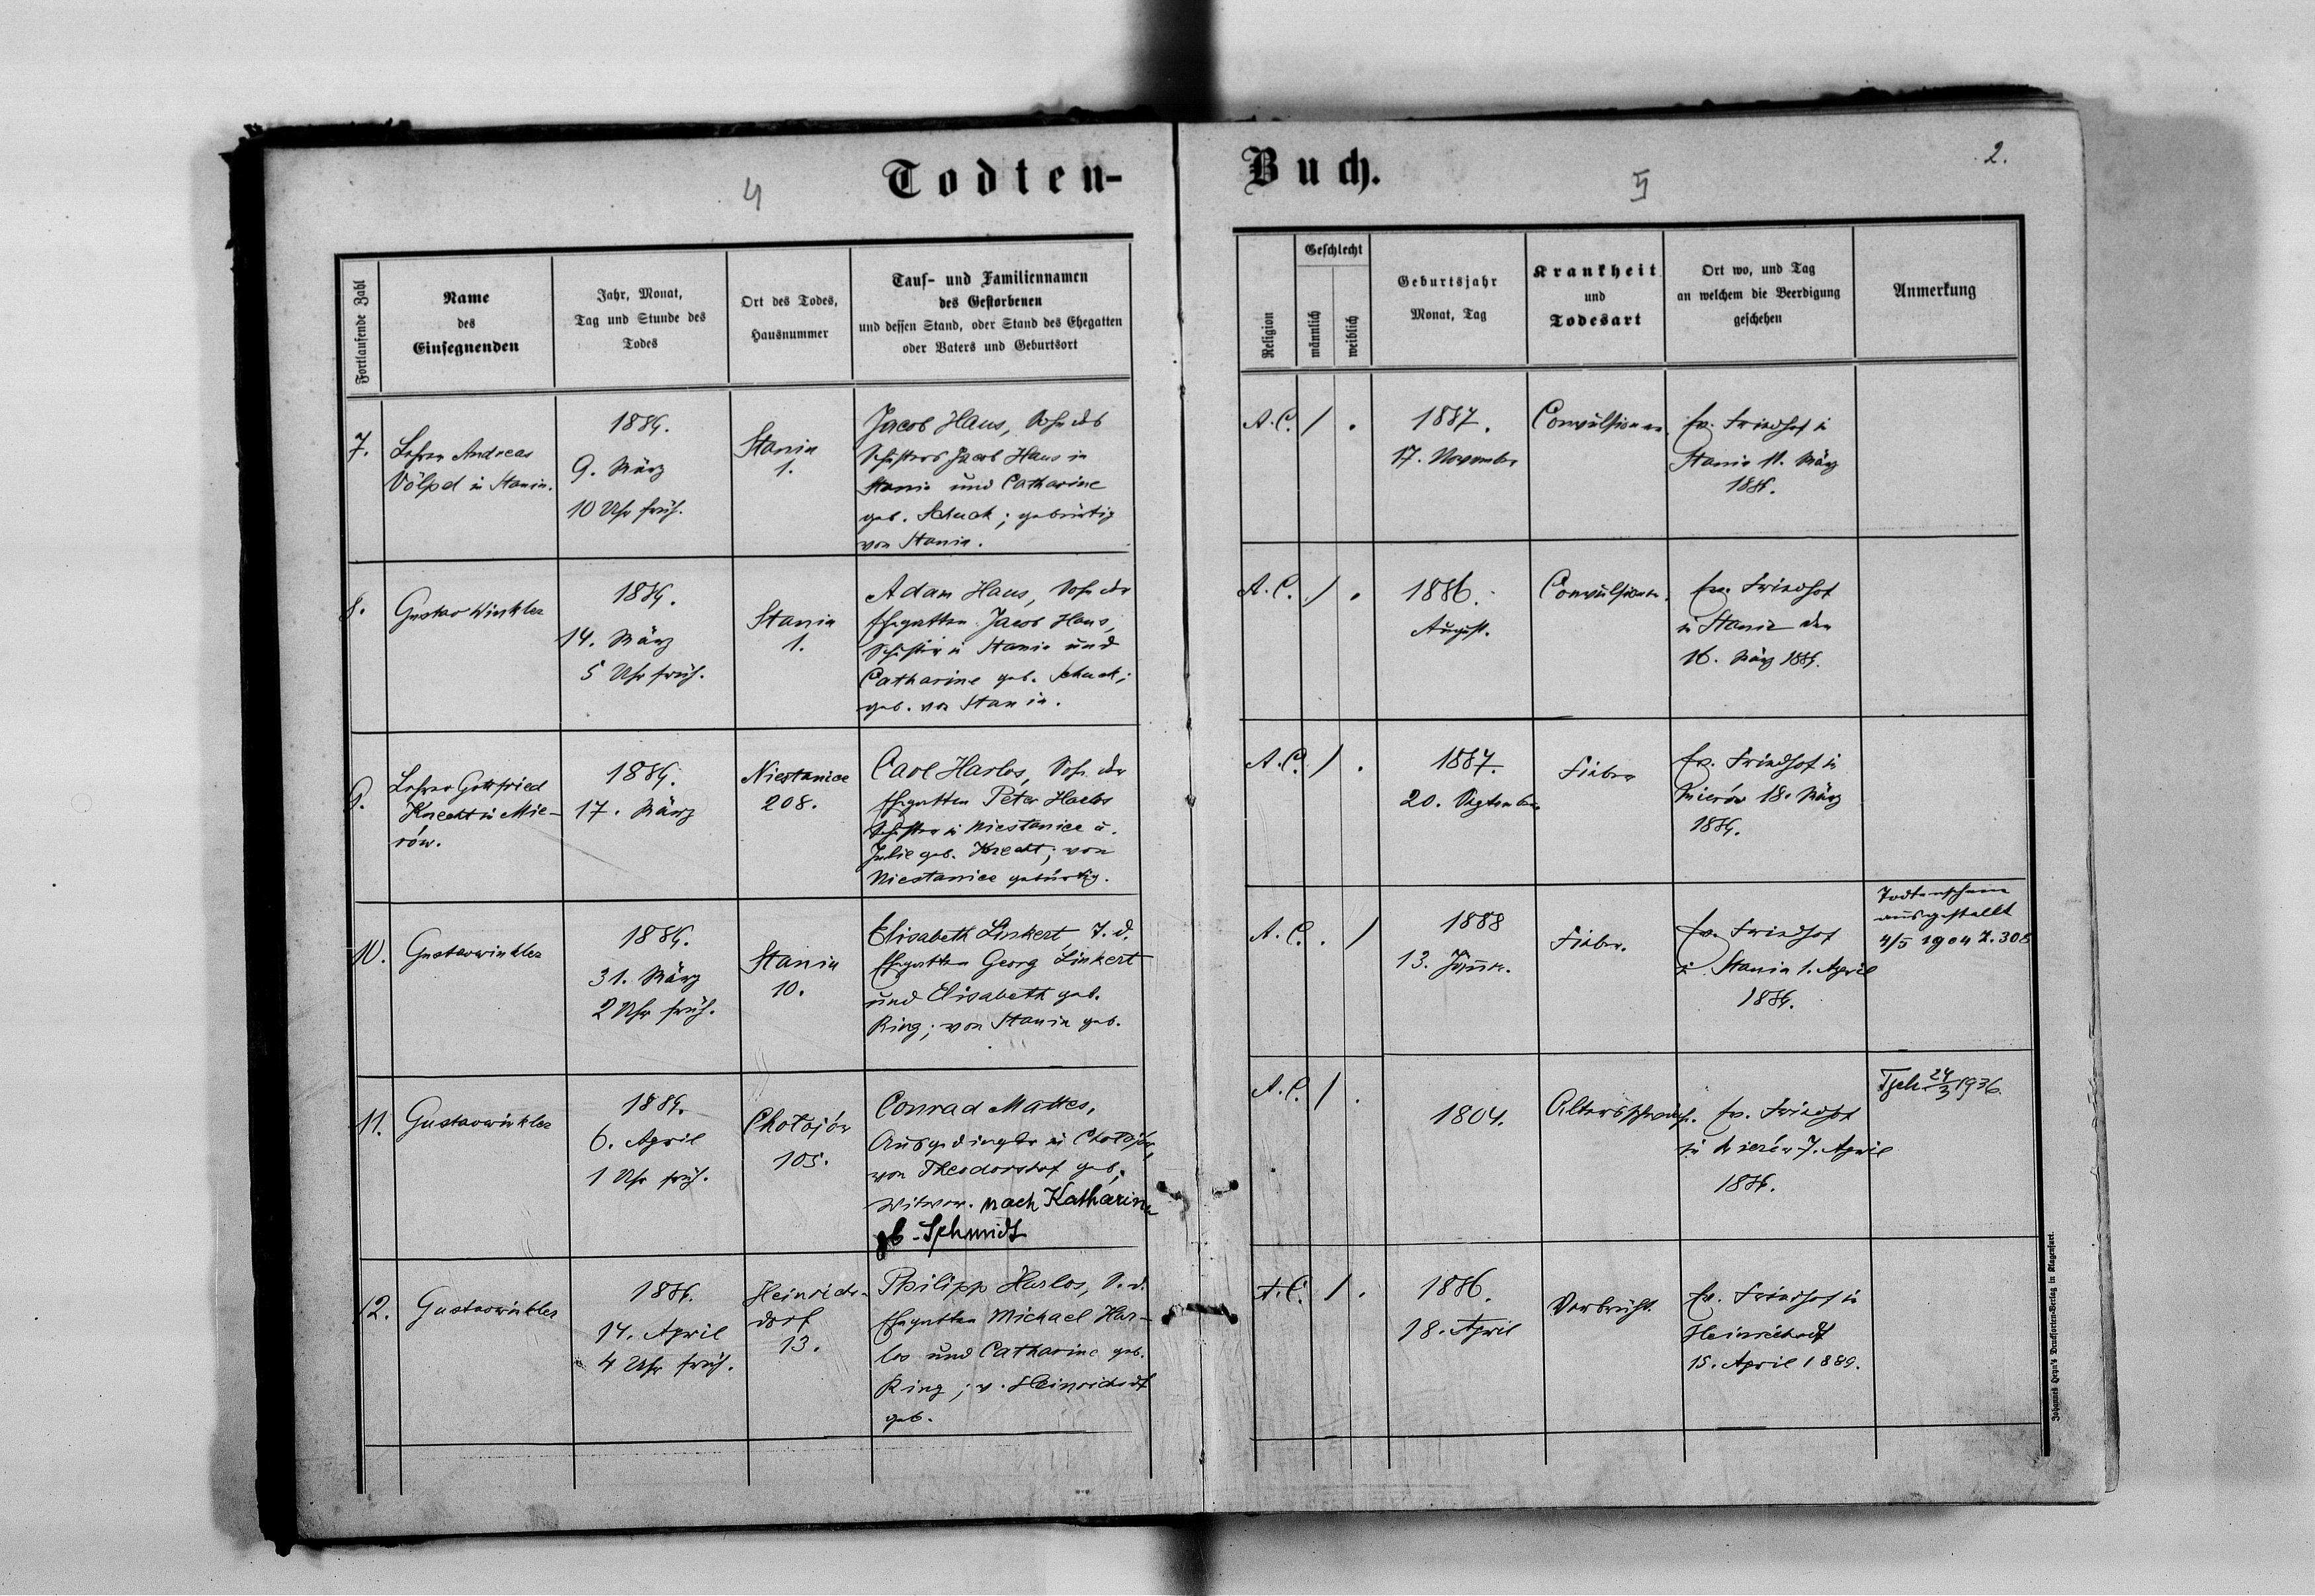 Todten-
4
Fortlaufende Zahl
Name
des
Einsegnenden
Jahr, Monat,
Tag und Stunde des
Todes
Ort des Todes,
Hausnummer
Tauf- und Familiennamen
des Gestorbenen
und dessen Stand, oder Stand des Ehegatten
oder Vaters und Geburtsort
7.
Lehrer Andreas
Völpel in Stanin.
1889.
9. März
10 Uhr früh.
Stanin
1.
Jacob Haus, Sohn des
Schusters Jacob Haus in
Stanin und Catharine
geb. Schuck; gebürtig
von Stanin.
8.
Gustav Winkler
1889.
14. März
5 Uhr früh.
Stanin
1.
Adam Haus, Sohn der
Ehegatten Jacob Haus,
Schuster in Stanin und
Catharine geb. Schuck;
geb. von Stanin.
9.
Lehrer Gottfried
Knecht in Mie-
rów.
1889.
17. März
Niestanice
208.
Carl Harlos, Sohn der
Ehegatten Peter Harlos
Schuster in Niestanice u.
Julie geb. Knecht; von
Niestanice gebürtig.
10.
Gustav Winkler
1889.
31. März
2 Uhr früh.
Stanin
10.
Elisabeth Linkert, T. d.
Ehegatten Georg Linkert
und Elisabeth geb.
Ring; von Stanin geb.
11.
Gustav Winkler
1889.
6. April
1 Uhr früh.
Chołojów
105.
Conrad Mattes,
Ausgedingler in Chołojów,
von Theodorshof geb.
Witwer. nach Katharina
gb. Schmidt
12.
Gustav Winkler
1889.
14. April
4 Uhr früh.
Heinrichs-
dorf
13.
Philipp Harlos, S. d.
Ehegatten Michael Har-
los und Catharine geb.
Ring; v. Heinrichsdf
geb.
Buch.
5
2.
Religion
Geschlecht
männlich
weiblich
Geburtsjahr
Monat, Tag
Krankheit
und
Todesart
Ort wo, und Tag
an welchem die Beerdigung
geschehen
Anmerkung
A. C. / .
1887.
17. November
Convulsionen.
Ev. Friedhof in
Stanin 11. März
1889.
A. C. / .
1886.
August.
Convulsionen.
Ev. Friedhof
in Stanin den
16. März 1889.
A. C. / .
1887.
20. September
Fieber
Ev. Friedhof in
Mierów 18. März
1889.
A. C. . /
1888
13. Jänn.
Fieber.
Ev. Friedhof
in Stanin 1. April
1889.
Todtenschein
ausgestellt
4/5 1904 Z. 308
A. C. / .
1804.
Altersschwäche.
Ev. Friedhof
in Mierów 7. April
1889.
Tsch. 24/3 1936.
A. C. / .
1886.
18. April
Verbrüht.
Ev. Friedhof in
Heinrichsdf
15. April 1889.
Johannes Heyn's Drucksorten-Verlag in Klagenfurt.